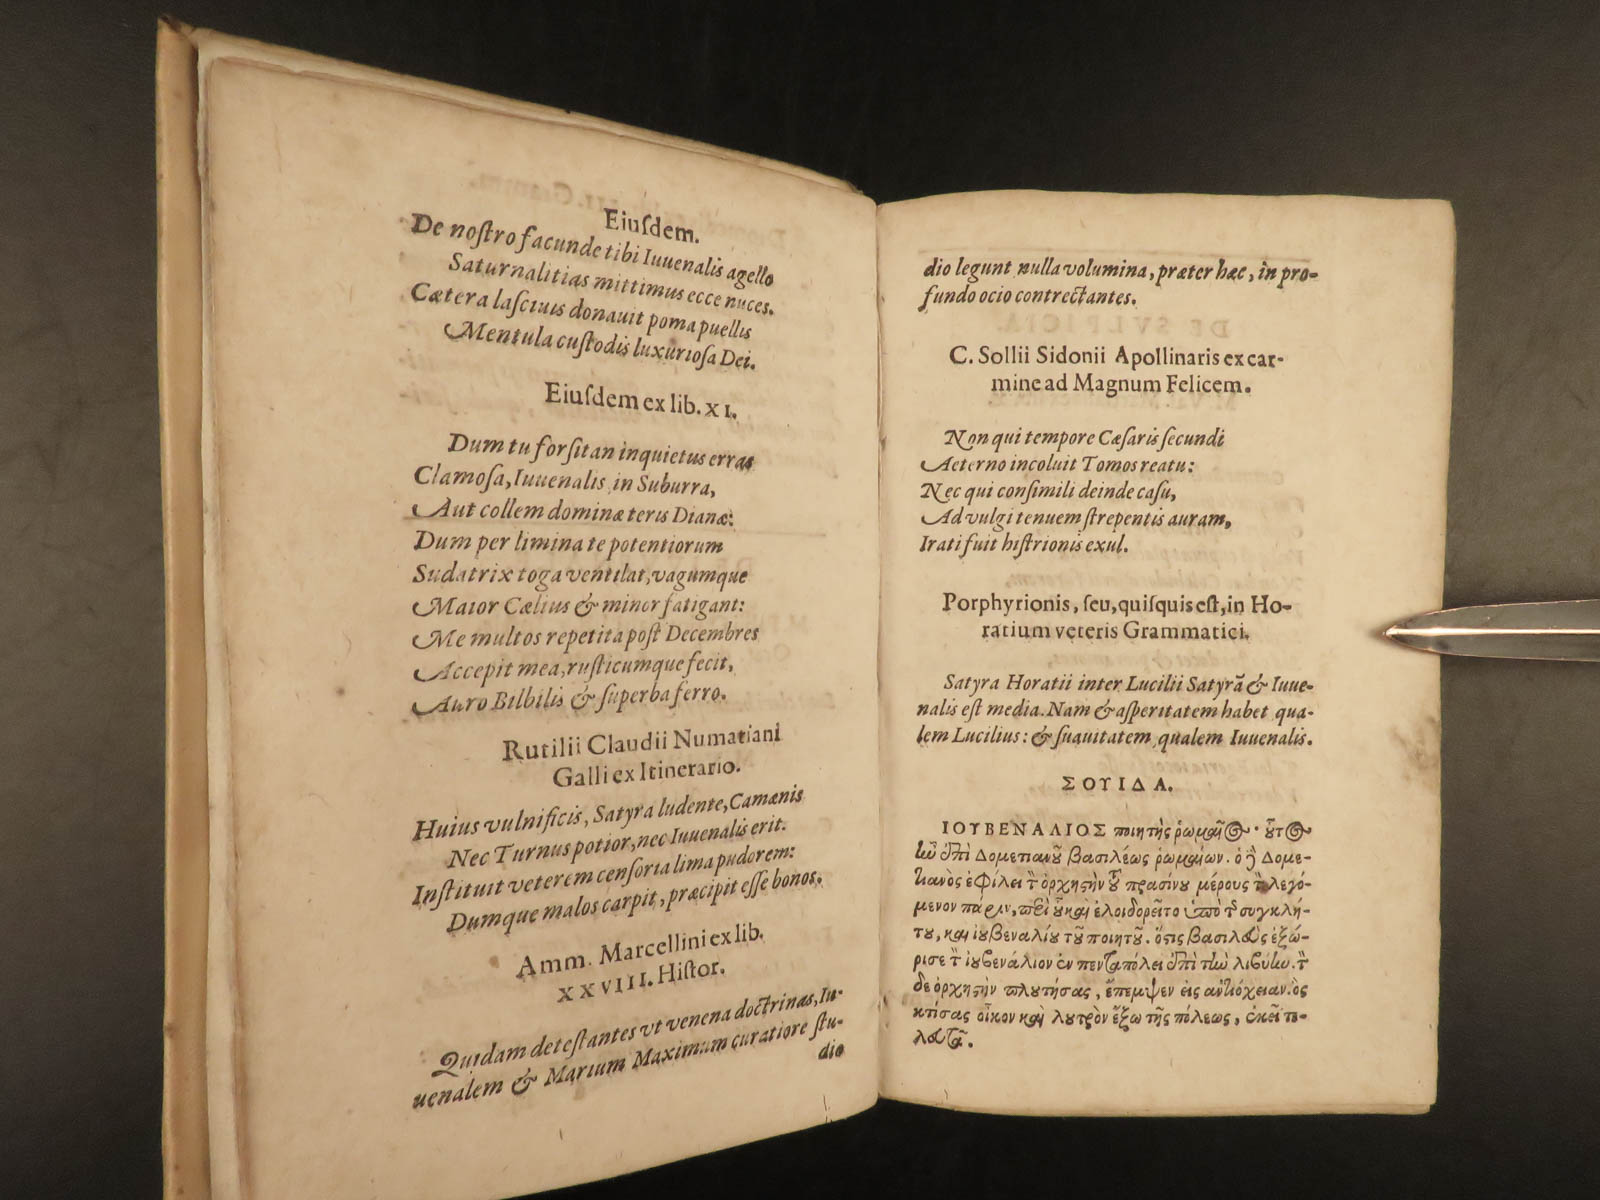 Eiuſdem.
De noſtro facunde tibi Iuuenalis agello
Saturnalitias mittimus ecce nuces.
Cætera laſciuis donauit poma puellis
Mentula cuſtodis luxurioſa Dei.
Eiuſdem ex lib. XI.
Dum tu forſitan inquietus erras
Clamoſa, Iuuenalis, in Suburra,
Aut collem dominæ teris Dianæ:
Dum per limina te potentiorum
Sudatrix toga ventilat, vagumque
Maior Cælius & minor fatigant:
Me multos repetita poſt Decembres
Accepit mea, ruſticumque fecit,
Auro Bilbilis & ſuperba ferro.
Rutilii Claudii Numatiani
Galli ex Itinerario.
Huius vulnificis, Satyra ludente, Camænis
Nec Turnus potior, nec Iuuenalis erit.
Inſtituit veterem cenſoria lima pudorem:
Dumque malos carpit, præcipit eſſe bonos.
Amm. Marcellini ex lib.
XXVIII. Hiſtor.
Quidam deteſtantes vt venena doctrinas, Iu-
uenalem & Marium Maximum curatiore ſtu-
dio
dio legunt nulla volumina, præter hæc, in pro-
fundo ocio contrectantes.
C. Sollii Sidonii Apollinaris ex car-
mine ad Magnum Felicem.
Non qui tempore Cæſaris ſecundi
Aeterno incoluit Tomos reatu:
Nec qui conſimili deinde caſu,
Ad vulgi tenuem ſtrepentis auram,
Irati fuit hiſtrionis exul.
Porphyrionis, ſeu, quiſquis eſt, in Ho-
ratium veteris Grammatici.
Satyra Horatii inter Lucilii Satyrã & Iuue-
nalis eſt media. Nam & aſperitatem habet qua-
lem Lucilius: & ſuauitatem, qualem Iuuenalis.
ΣΟΥΙΔΑ.
ΙΟΥΒΕΝΑΛΙΟΣ ποιητὴς ῥωμαῖος. οὗτος
ἦν ἐπὶ Δομετιανοῦ βασιλέως ῥωμαίων. ὁ δὲ Δομε-
τιανὸς ἐφίλει τὸν ὀρχηστὴν τοῦ πρασίνου μέρους τὸν λεγό-
μενον πάριν, περὶ οὗ καὶ ἐλοιδορεῖτο ὑπὸ τῆς συγκλή-
του, καὶ ἰουβεναλίου τοῦ ποιητοῦ. ὅστις βασιλεὺς ἐξώ-
ρισε τὸν ἰουβενάλιον ἐν πενταπόλει ἐπὶ τὴν λιβύην. τὸν
δὲ ὀρχηστὴν πλουτήσας, ἔπεμψεν εἰς ἀντιόχειαν. ὃς
κτίσας οἶκον καὶ λουτρὸν ἔξω τῆς πόλεως, ἐκεῖ τε-
λευτᾷ.